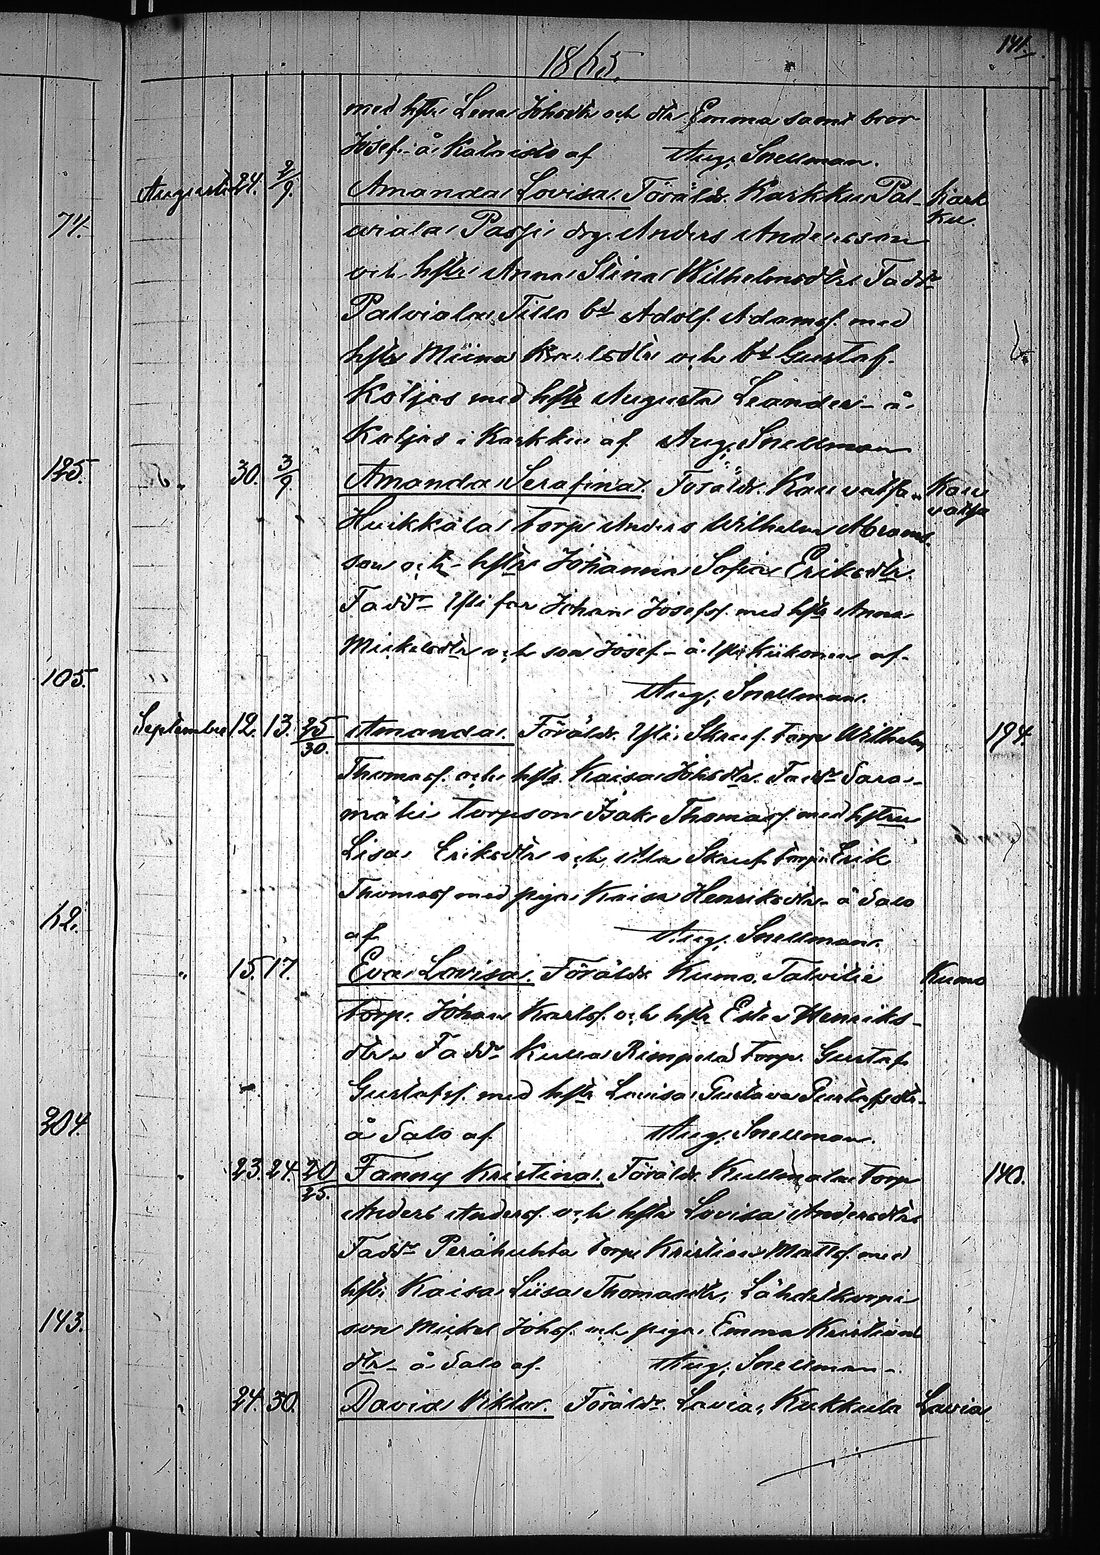 141.
1865.
med hstr Lena Johsdtr och dtr Emma samt bror
Josef å af Aug. Snellman.
Augusti 24. 2/9. Amanda Lovisa. Föräldr. Karkku Pal- Kark
ku.
74.
viala Pasji drg. Anders Andersson
och hstr Anna Stina Wilhelmsdtr Faddr
Palviala Tilli bd Adolf Adamsf. med
hstr Miina Karlsdtr och bd Gustaf
Koljas med hstr Augusta Leander å
Koljas i Karkku af Aug. Snellman
125.
" 30. 3/9 Amanda Serafina. Föräldr. Kauvatsa Kau
vatsa
Huikkala torp. Anders Wilhelm Abrams
son och hstr Johanna Sofia Eriksdtr.
Faddr Yli far Johan Josefsf. med hstr Anna
Mickelsdtr och son Josef å Yli Kiikonen af
105.
Aug. Snellman.
September 12. 13. 25/30. Amanda. Föräldr. Yli Skruf torp. Wilhelm 194.
Thomasf. och hstr Kaisa Johsdtr. Faddr Sara-
mäki torpson Isak Thomasf. med hstru
Lisa Eriksdtr och Ala Skruf torp. Erik
Thomasf. med piga Kaisa Henriksdtr å Salo
62.
af Aug. Snellman.
" 15. 17. Eva Lovisa. Föräldr Kumo, Talvitie Kumo
torp. Johan Karlsf. och hstr Ester Henriks-
dtr. Faddr Kulla Rimpelä torp. Gustaf
Gustafsf. med hstr Lovisa Gustava Gustafsdtr
204.
å Salo af Aug. Snellman.
" 23. 24. 20/25. Fanny Kristina. Föräldr. Kullmala torp 140.
Anders Andersf. och hstr Lovisa Andersdtr
Faddr Perähuhta torp. Kristian Mattsf. med
hstr Kaisa Liisa Thomasdtr, Lähdekorpi
143.
son Mickel Johsf. och piga Emma Kristians
dtr å Salo af Aug. Snellman
" 24. 30. David Viktor. Föräldr. Lavia, Kukkula Lavia